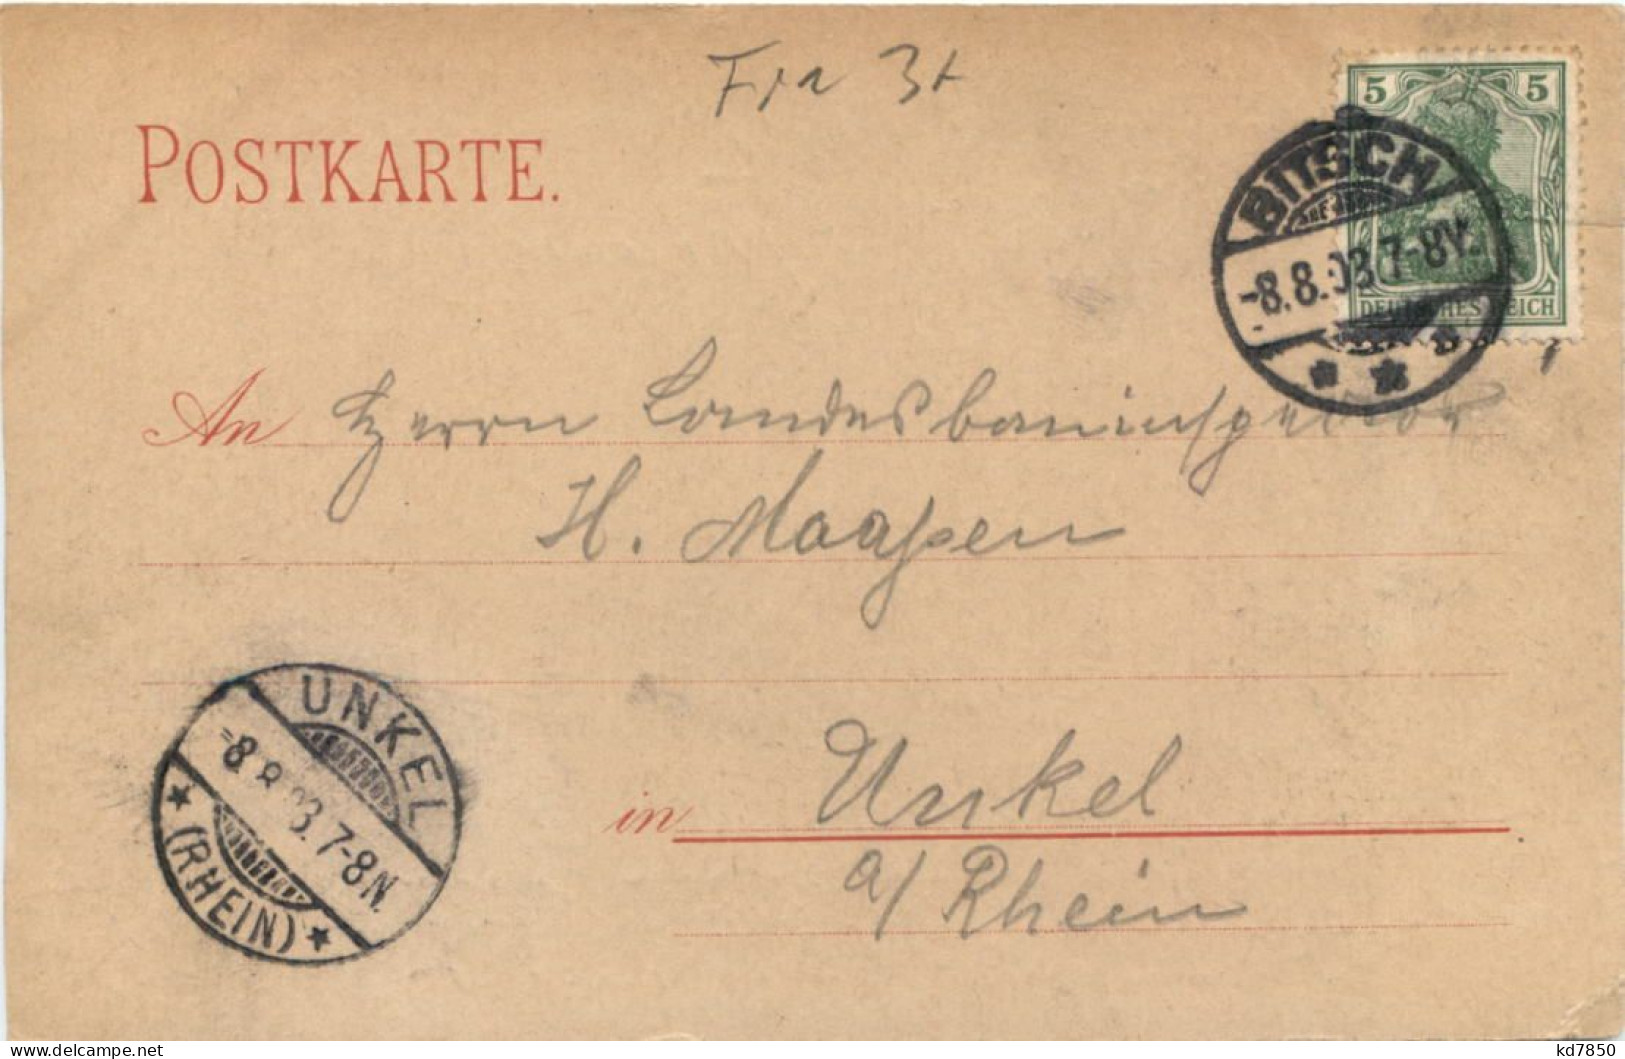 POSTKARTE.
5 5
BITSCH
-8.8.03.7-8V.
DEUTSCHES REICH
An Herrn Landesbauinspektor
H. Maassen
UNKEL
-8.8.03.7-8N.
(RHEIN)
in Unkel
a/ Rhein
kd7850